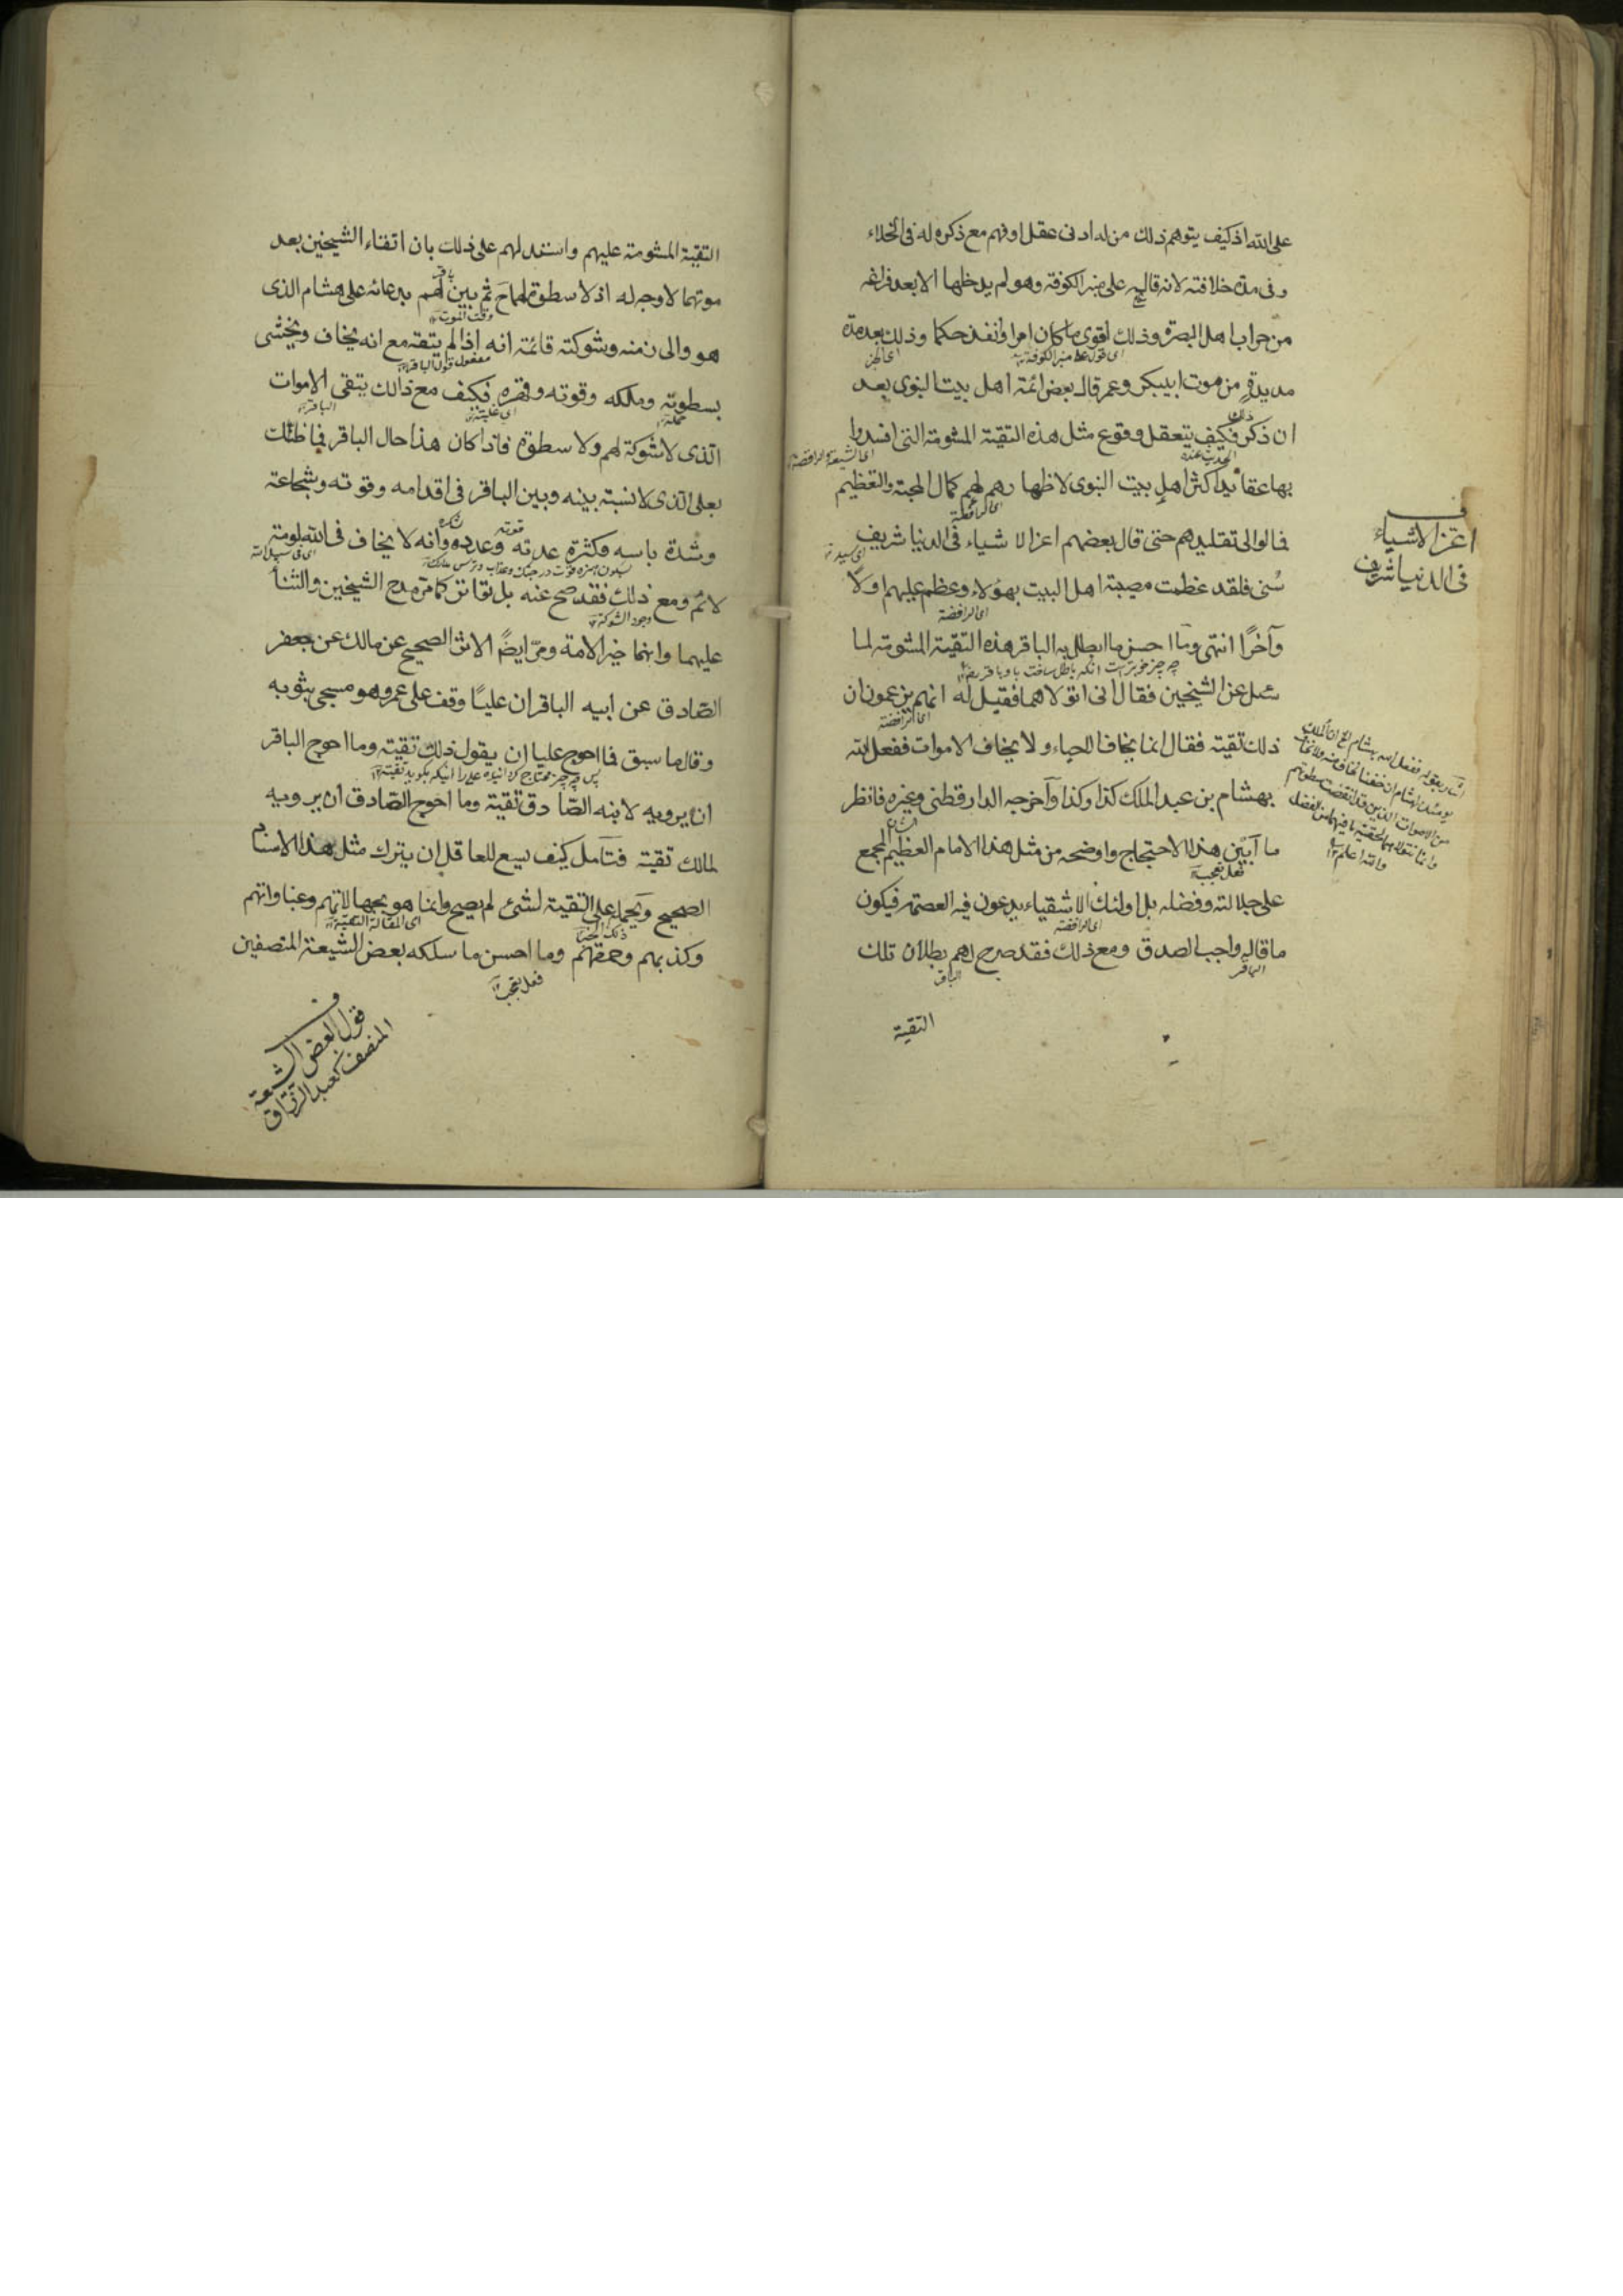 على الله اذ كيف يتوهم ذلك من له ادنى عقل او فهم مع ذكره له فى الخلاء
وفى مدة خلافته لانه قاله على منبر الكوفة وهو لم يدخلها الا بعد فراغه
من حراب اهل البصرة وذلك اقوى ما كان امرا وانفذ حكما وذلك بعد مدة
اى قوله على منبر الكوفة
مديدة من موت ابيبكر وعمر قال بعض ائمة اهل بيت النبوى بعد
ان ذكر ذلك فكيف يتعقل وقوع مثل هذه التقية المشومة التى افسدوا
اى الشيعة الرافضة
بها عقائد اكثر اهل بيت النبوى لاظهارهم لهم كمال المحبة والتعظيم
اى الرافضة
فمالوا الى تقليدهم حتى قال بعضهم اعز الاشياء فى الدنيا شريف
اى سيد
سُنى فلقد عظمت مصيبة اهل البيت بهؤلاء وعظم عليهم اولا
اى الرافضة
وآخرًا انتهى وما احسن ما ابطل به الباقر هذه التقية المشومة لما
سئل عن الشيخين فقال انى اتولاهما فقيل له انهم يزعمون ان
اى الرافضة
ذلك تقية فقال انما يخاف الاحياء ولا يخاف الاموات ففعل الله
بهشام بن عبد الملك كذا وكذا وآخرجه الدار قطنى وغيره فانظر
ما آبين هذا الاحتجاج واوضحه من مثل هذا الامام العظيم المجمع
فعل تعجب
على جلالته وفضله بل اولئك الاشقياء يدعون فيه العصمة فيكون
اى الرافضة
ما قاله واجب الصدق ومع ذلك فقد صرح لهم ببطلان تلك
الباقر
الباقر
التقية
ف
اعز الاشياء
فى الدنيا شريف
والله اعلم
التقية المشومة عليهم واستدل لهم على ذلك بان اتقاء الشيخين بعد
موتهما لا وجه له اذ لا سطوة لهما ح ثم بين لهم بدعائه على هشام الذى
وقت الموت
هو والى زمنه وشوكته قائمة انه اذا لم يتقه مع انه يخاف ويخشى
مفعول قول الباقر
بسطوته وملكه وقوته وقهره فكيف مع ذالك يتقى الاموات
الباقر
الذى لا شوكة لهم ولا سطوة فاذا كان هذا حال الباقر فما ظنك
بعلى الذى لا نسبة بينه وبين الباقر فى اقدامه وقوته وشجاعته
وشدة باسه وكثرة عدته وعدده وانه لا يخاف فى الله لومة
اى فى سبيل الله
لائم ومع ذلك فقد صح عنه بل تواتر كما مر مدح الشيخين والثناء
وجود الشوكة
عليهما وانهما خير الامة ومرّ ايضًا الاثر الصحيح عن مالك عن جعفر
الصّادق عن ابيه الباقر ان عليًا وقف على عمر وهو مسجى بثوبه
وقال ما سبق فما احوج عليا ان يقول ذلك تقية وما احوج الباقر
ان يرويه لابنه الصّادق تقية وما احوج الصّادق ان يرويه
لمالك تقية فتامل كيف يسع للعاقل ان يترك مثل هذا الاسناد
الصحيح ويحمله على التقية لشئ لم يصح وانما هو
وكذبهم وحمقهم وما احسن ما سلكه بعض الشيعة المنصفين
فعل تعجب
ف
قول بعض الشيعة
المنصف كعبد الرزاق